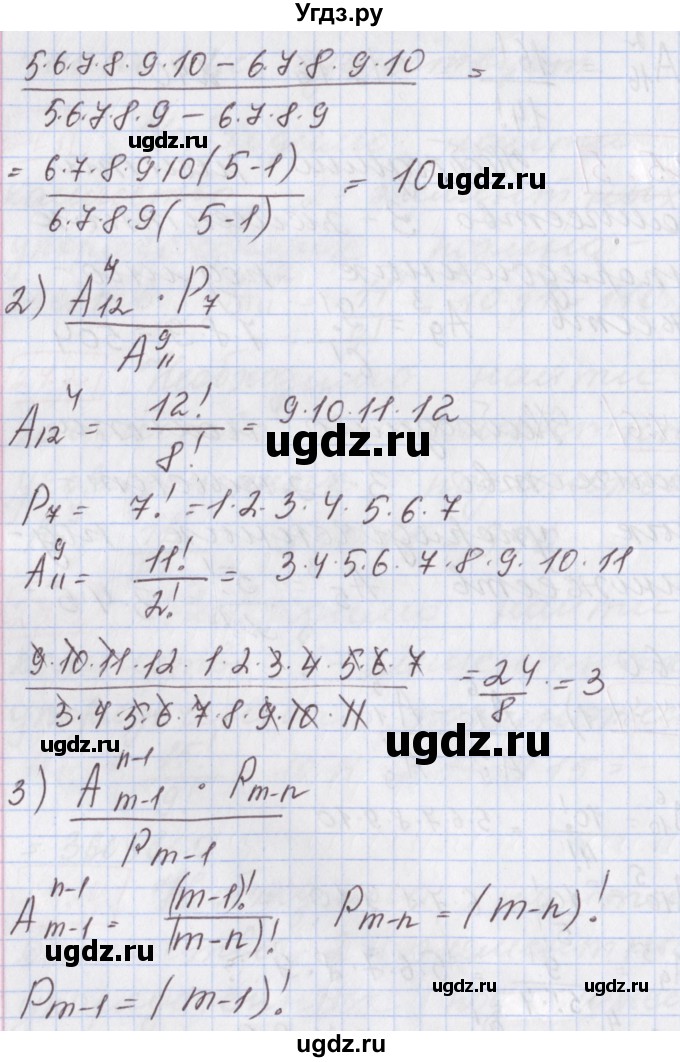 Угдз.ру
5·6·7·8·9·10 − 6·7·8·9·10 =
5·6·7·8·9 − 6·7·8·9
ugdz.ru
= 6·7·8·9·10(5−1) = 10
ugdz.ru
6·7·8·9(5−1)
2) A⁴₁₂ · P₇
A⁹₁₁
A₁₂⁴ = 12!/8! = 9·10·11·12
ugdz.ru
P₇ = 7! = 1·2·3·4·5·6·7
A⁹₁₁ = 11!/2! = 3·4·5·6·7·8·9·10·11
9·10·11·12·1·2·3·4·5·6·7 = 24/8 = 3
3·4·5·6·7·8·9·10·11
ugdz.ru
ugdz.ru
3) Aⁿ⁻¹ₘ₋₁ · Pm−n
Pm−1
Aⁿ⁻¹ₘ₋₁ = (m−1)!/(m−n)! Pm−n = (m−n)!
ugdz.ru
Pm−1 = (m−1)!
ugdz.ru
ugdz.ru